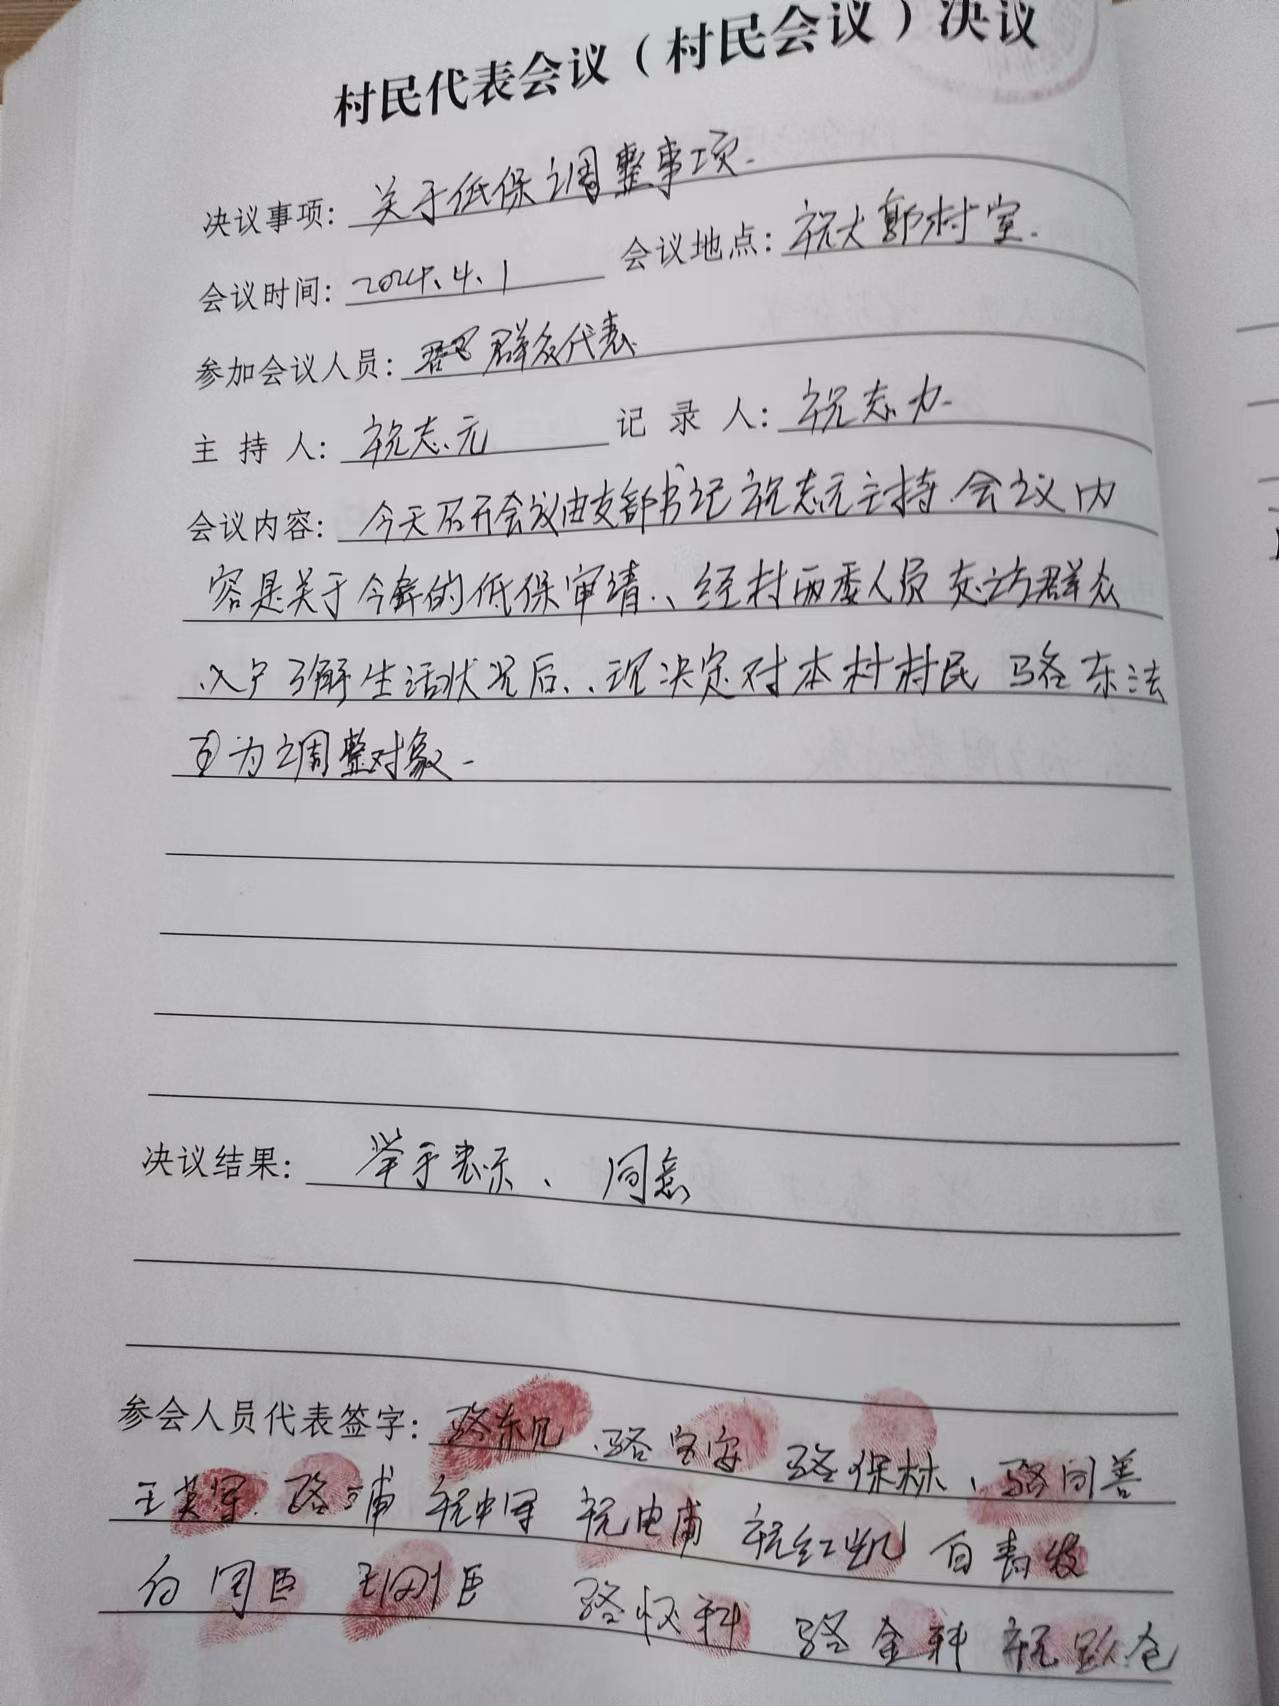 村民代表会议（村民会议）决议
决议事项：关于低保调整事项.
会议时间：2024.4.1 会议地点：祝大郭村室.
参加会议人员：群众代表
主持人：祝志元 记录人：祝志力.
会议内容：今天召开会议由支部书记祝志元主持.会议内
容是关于今年的低保审请.、经村两委人员走访群众
入户了解生活状况后、.现决定对本村村民 骆东法
为调整对象.
决议结果：举手表示、同意
参会人员代表签字：骆东 、骆宝安 骆保林、骆同善
王英军 骆 甫 祝中军 祝电甫 祝红凯 白青
白同臣 王刚臣 骆怀科 骆金科 祝 仓